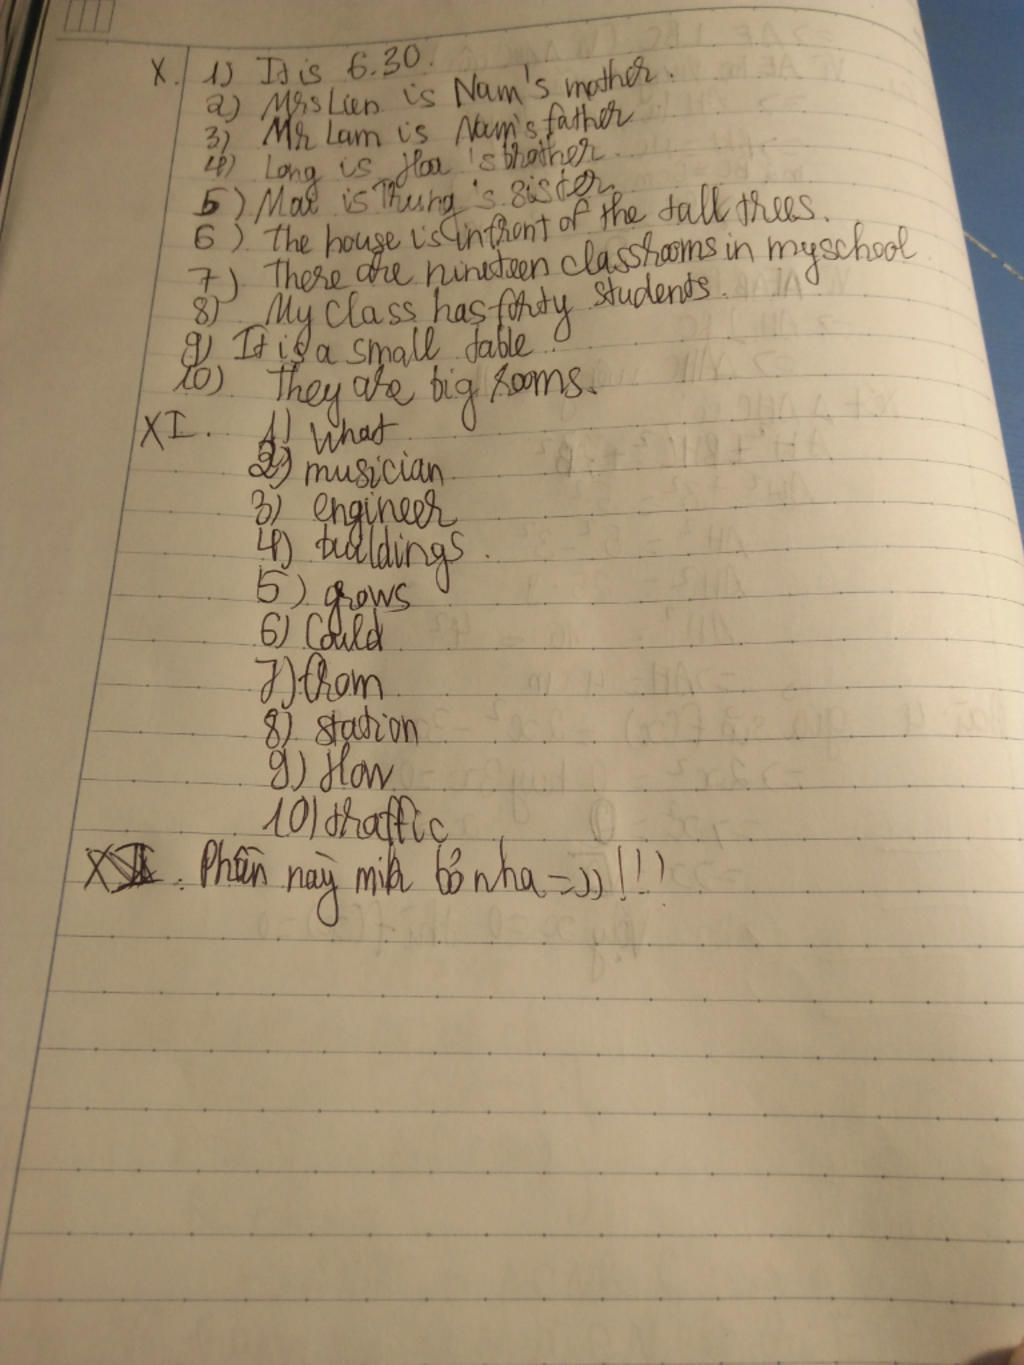 X. 1) It is 6.30.
2) Mrs Lien is Nam's mother.
3) Mr Lam is Nam's father
4) Long is Hoa's brother.
5) Mai is Trung's sister.
6) The house is in front of the tall trees.
7) There are nineteen classrooms in my school
8) My class has forty students.
9) It is a small table.
10) They are big rooms.
XI. 1) What
2) musician
3) engineer
4) buildings.
5) grows
6) Could
7) from
8) station
9) How
10) traffic
Phần này mik bỏ nha =)) !!!